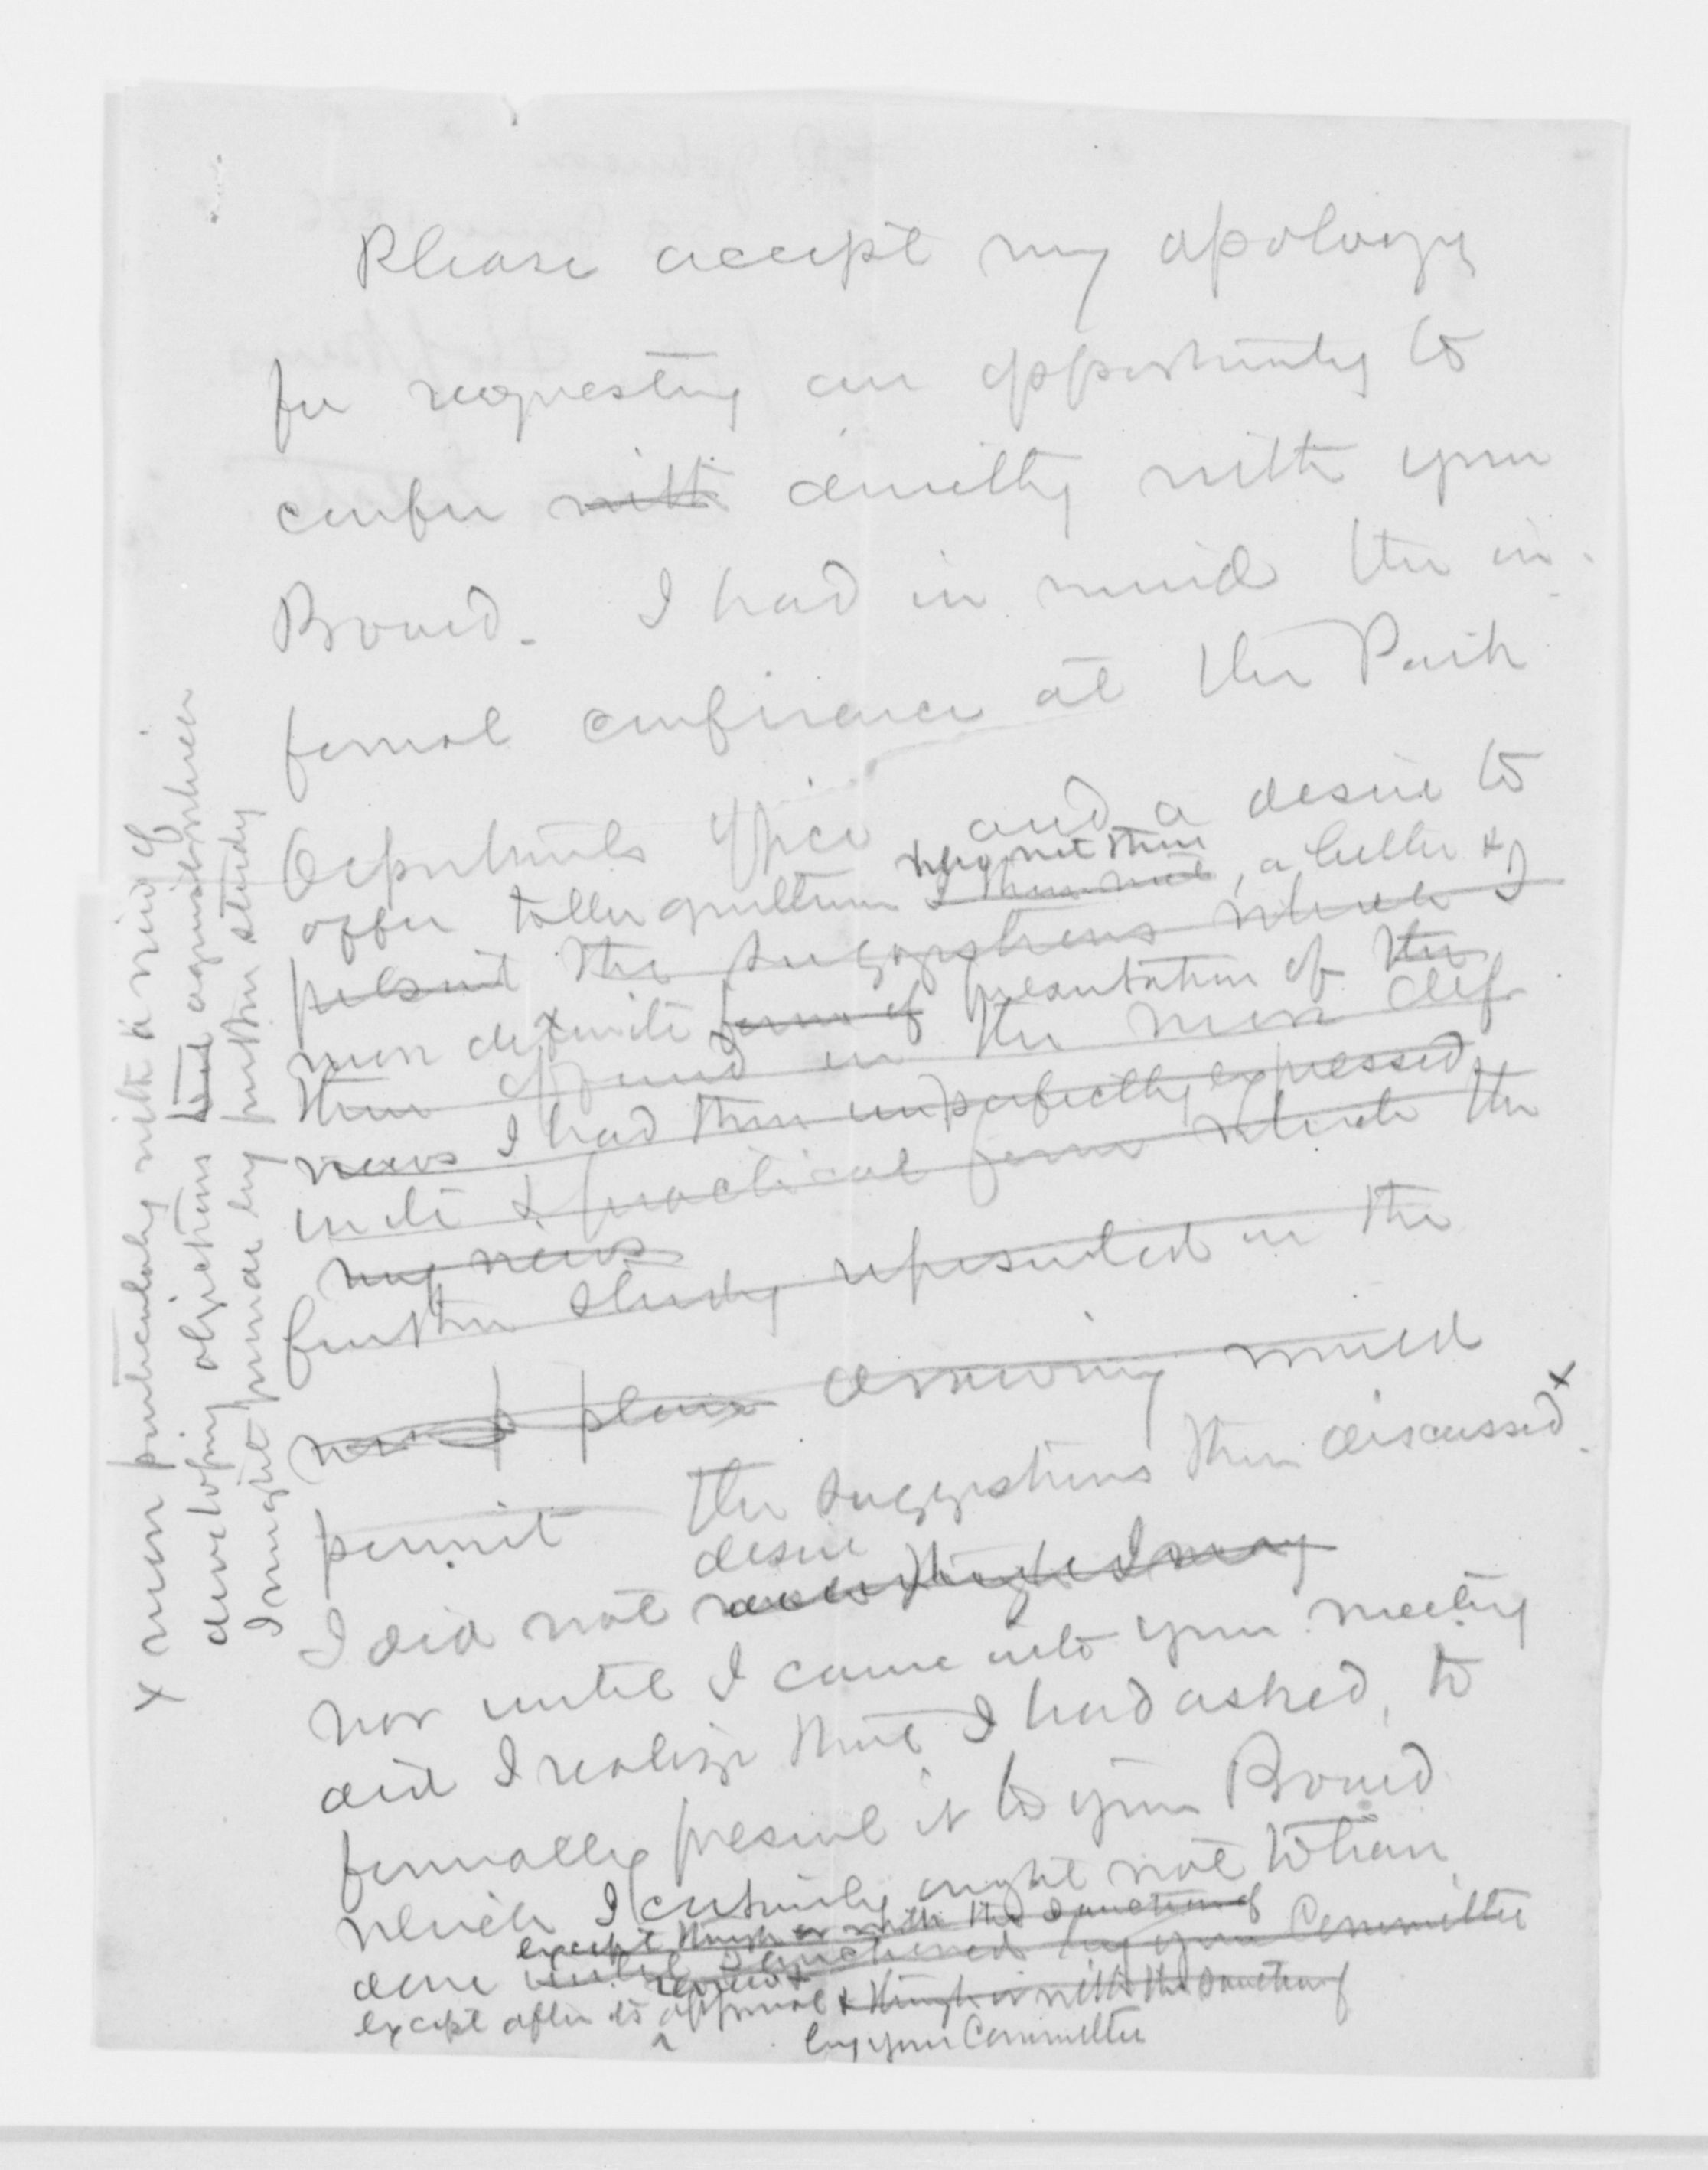 Please accept my apology
for requesting an opportunity to
confer with directly with your
Board. I had in mind the in-
formal conference at the Park
Department's office and a desire to
offer to the gentlemen then, a better &
present the suggestions which I
more definite form of presentation of the
then offered in the more def-
views I had then imperfectly expressed
inite & practical form which the
my views
further study represented in the
plan drawing would
permit the suggestions then discussed. x
I did not desire
nor until I came into your meeting
did I realize that I had asked, to
formally present it to your Board
which I certainly ought not to have
except through or with the sanction of
done until sanctioned by your Committee
review &
except after its approval & through or with the sanction of
by your Committee
x more particularly with a view of
developing objections and acquiescence
I might made by further study